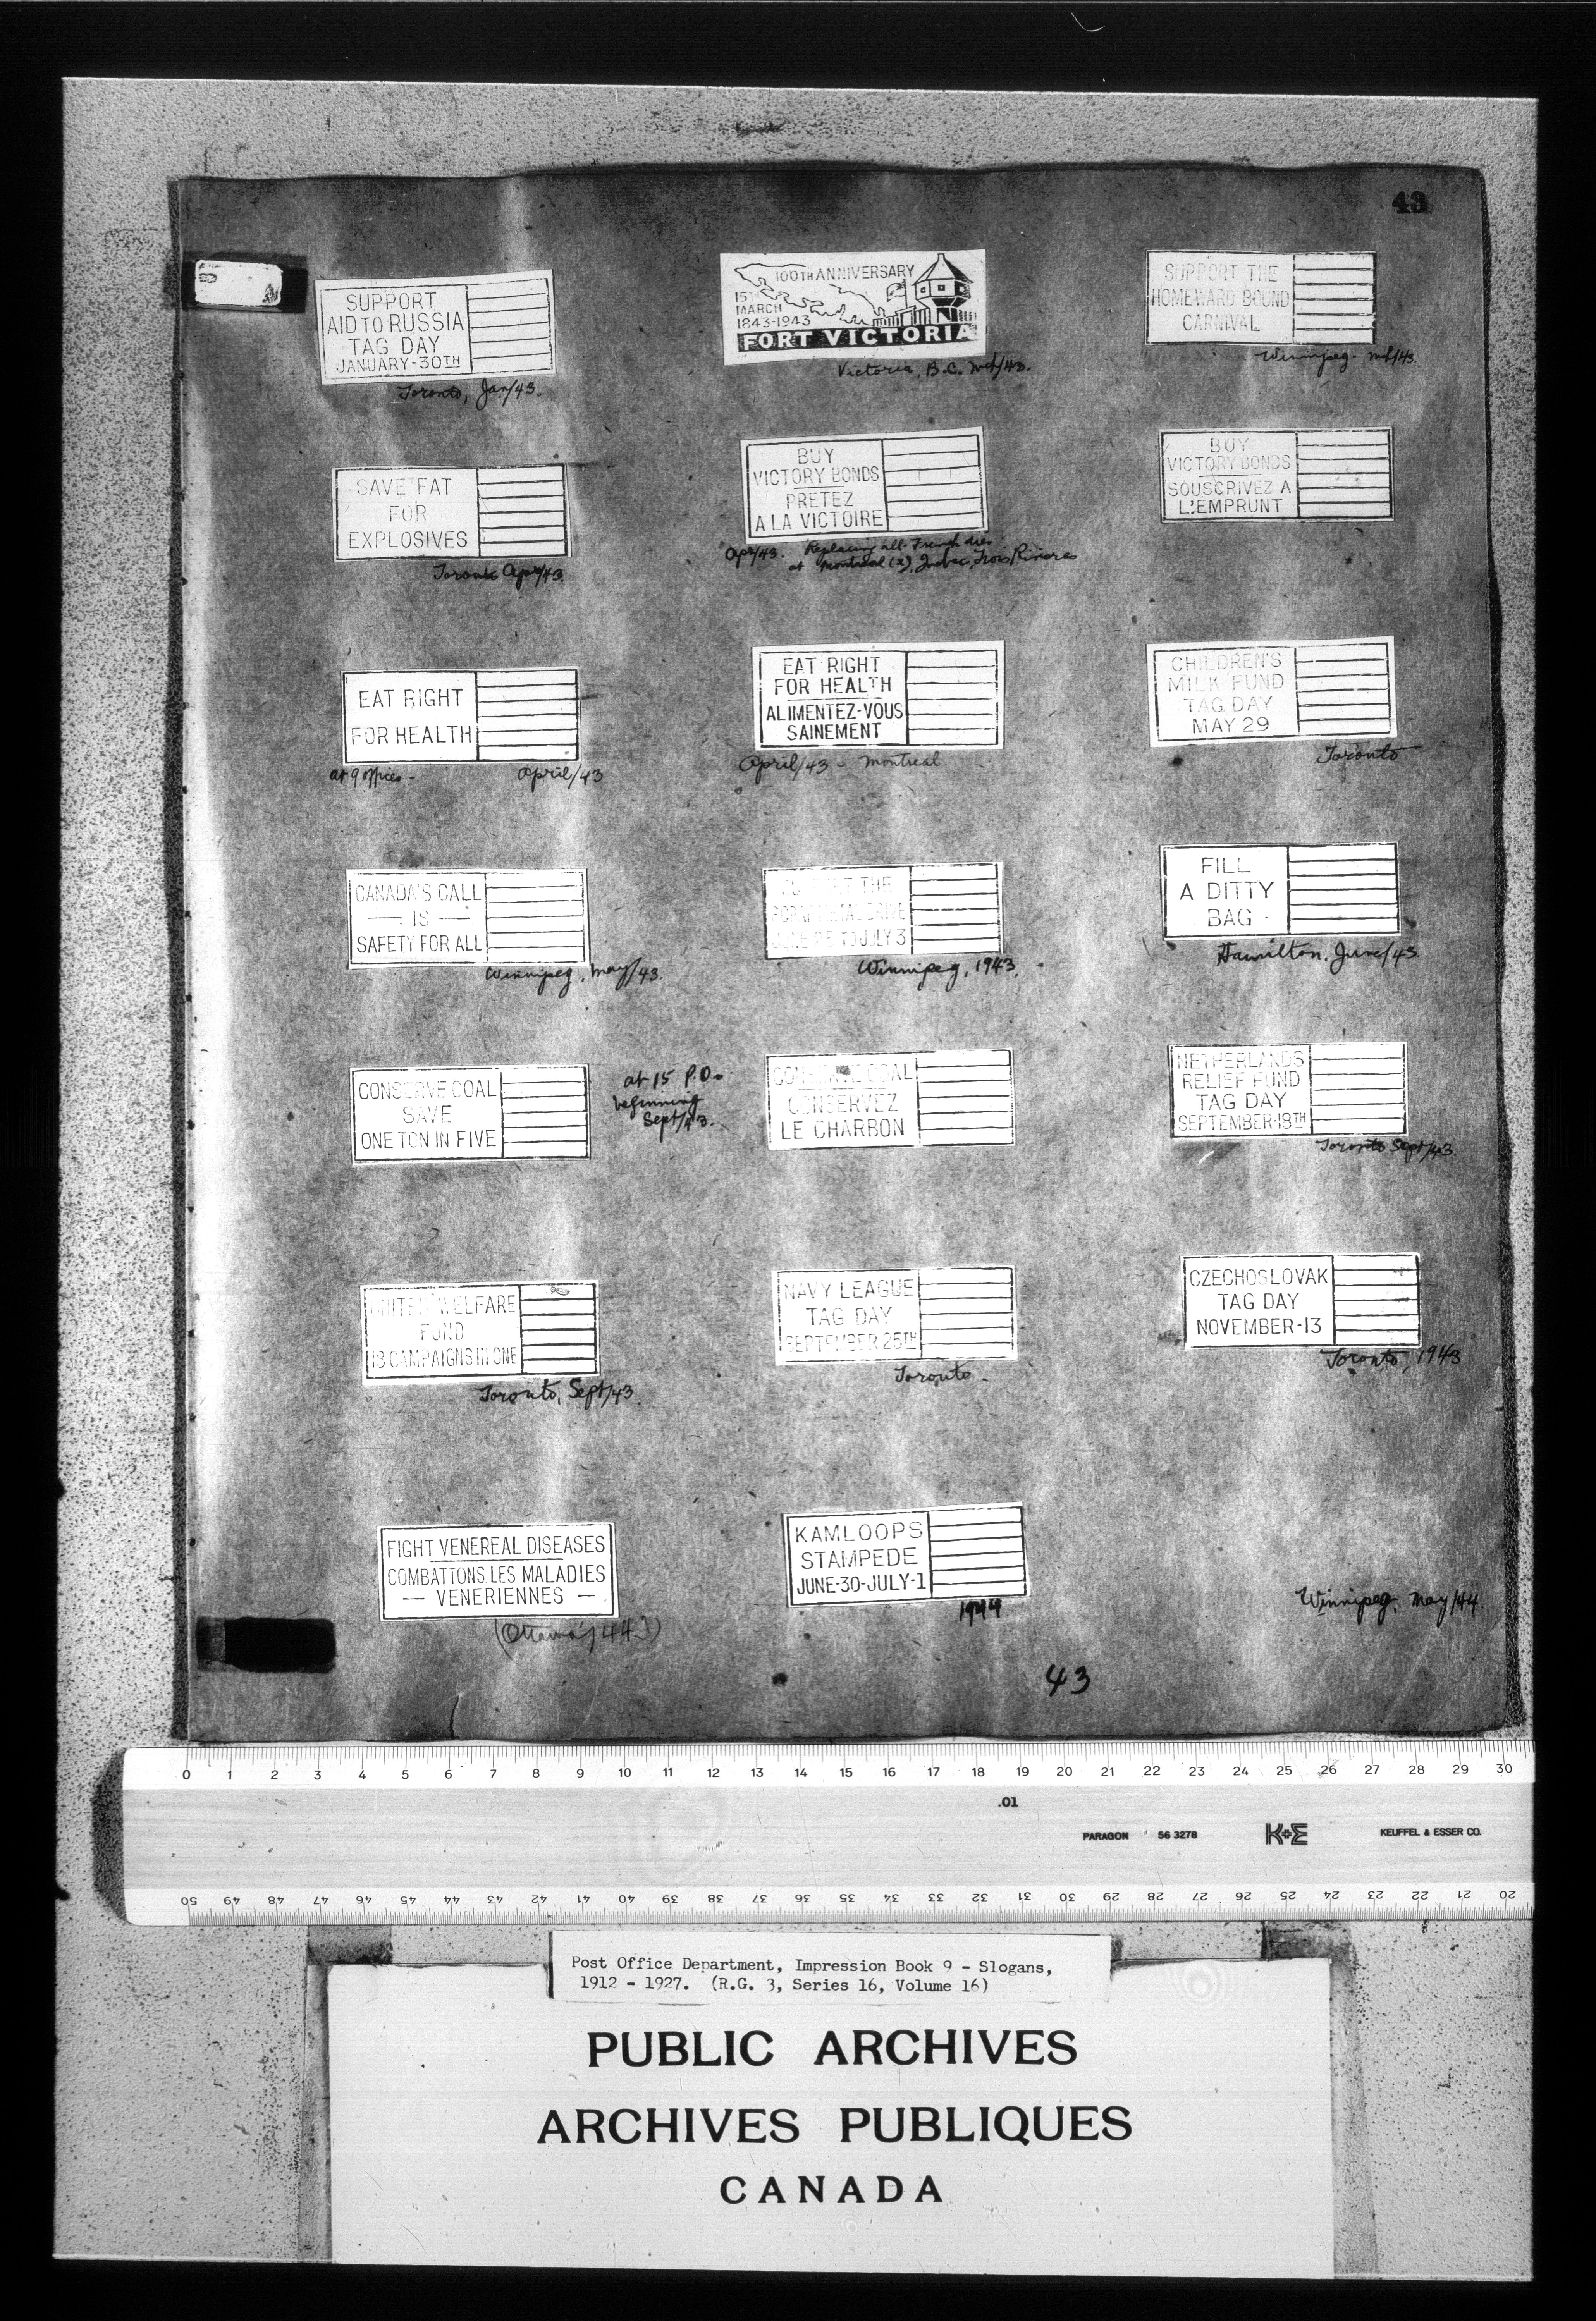 43
SUPPORT
AID TO RUSSIA
TAG DAY
JANUARY-30TH
Toronto, Jan/43.
100TH ANNIVERSARY
15TH
MARCH
1843-1943
FORT VICTORIA
Victoria, B.C. Mch/43.
SUPPORT THE
HOMEWARD BOUND
CARNIVAL
Winnipeg. Mch/43.
SAVE FAT
FOR
EXPLOSIVES
Toronto Apr/43.
BUY
VICTORY BONDS
PRETEZ
A LA VICTOIRE
Apr/43. Replacing all-French dies
at Montreal (2), Quebec, Trois Rivieres
BUY
VICTORY BONDS
SOUSCRIVEZ A
L'EMPRUNT
EAT RIGHT
FOR HEALTH
at 9 offices - April/43
EAT RIGHT
FOR HEALTH
ALIMENTEZ-VOUS
SAINEMENT
April/43 - Montreal
CHILDREN'S
MILK FUND
TAG DAY
MAY 29
Toronto
CANADA'S CALL
— IS —
SAFETY FOR ALL
Winnipeg, May/43.
THE
SCRAP METAL DRIVE
JUNE 25 TO JULY 3
Winnipeg, 1943.
FILL
A DITTY
BAG
Hamilton, June/43.
CONSERVE COAL
SAVE
ONE TON IN FIVE
at 15 P.O.
beginning
Sept/43.
CONSERVE COAL
CONSERVEZ
LE CHARBON
NETHERLANDS
RELIEF FUND
TAG DAY
SEPTEMBER-18TH
Toronto Sept/43.
UNITED WELFARE
FUND
13 CAMPAIGNS IN ONE
Toronto, Sept/43
NAVY LEAGUE
TAG DAY
SEPTEMBER 25TH
Toronto.
CZECHOSLOVAK
TAG DAY
NOVEMBER-13
Toronto, 1943
FIGHT VENEREAL DISEASES
COMBATTONS LES MALADIES
— VENERIENNES —
(Ottawa/44)
KAMLOOPS
STAMPEDE
JUNE-30-JULY-1
1944
Winnipeg, May/44.
43
0 1 2 3 4 5 6 7 8 9 10 11 12 13 14 15 16 17 18 19 20 21 22 23 24 25 26 27 28 29 30
.01
PARAGON 56 3278 K+E KEUFFEL & ESSER CO.
50 49 48 47 46 45 44 43 42 41 40 39 38 37 36 35 34 33 32 31 30 29 28 27 26 25 24 23 22 21 20
Post Office Department, Impression Book 9 - Slogans,
1912 - 1927. (R.G. 3, Series 16, Volume 16)
PUBLIC ARCHIVES
ARCHIVES PUBLIQUES
CANADA